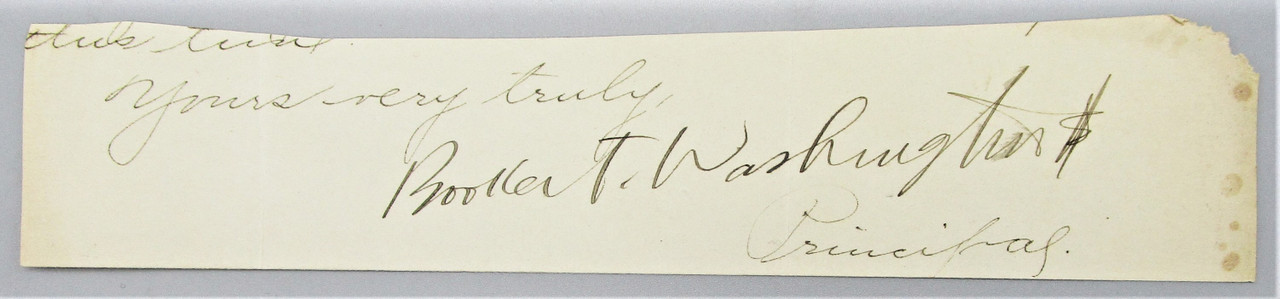 this time.
Yours very truly,
Booker T. Washington
Principal.